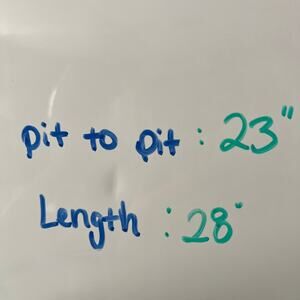 pit to pit : 23"
Length : 28"